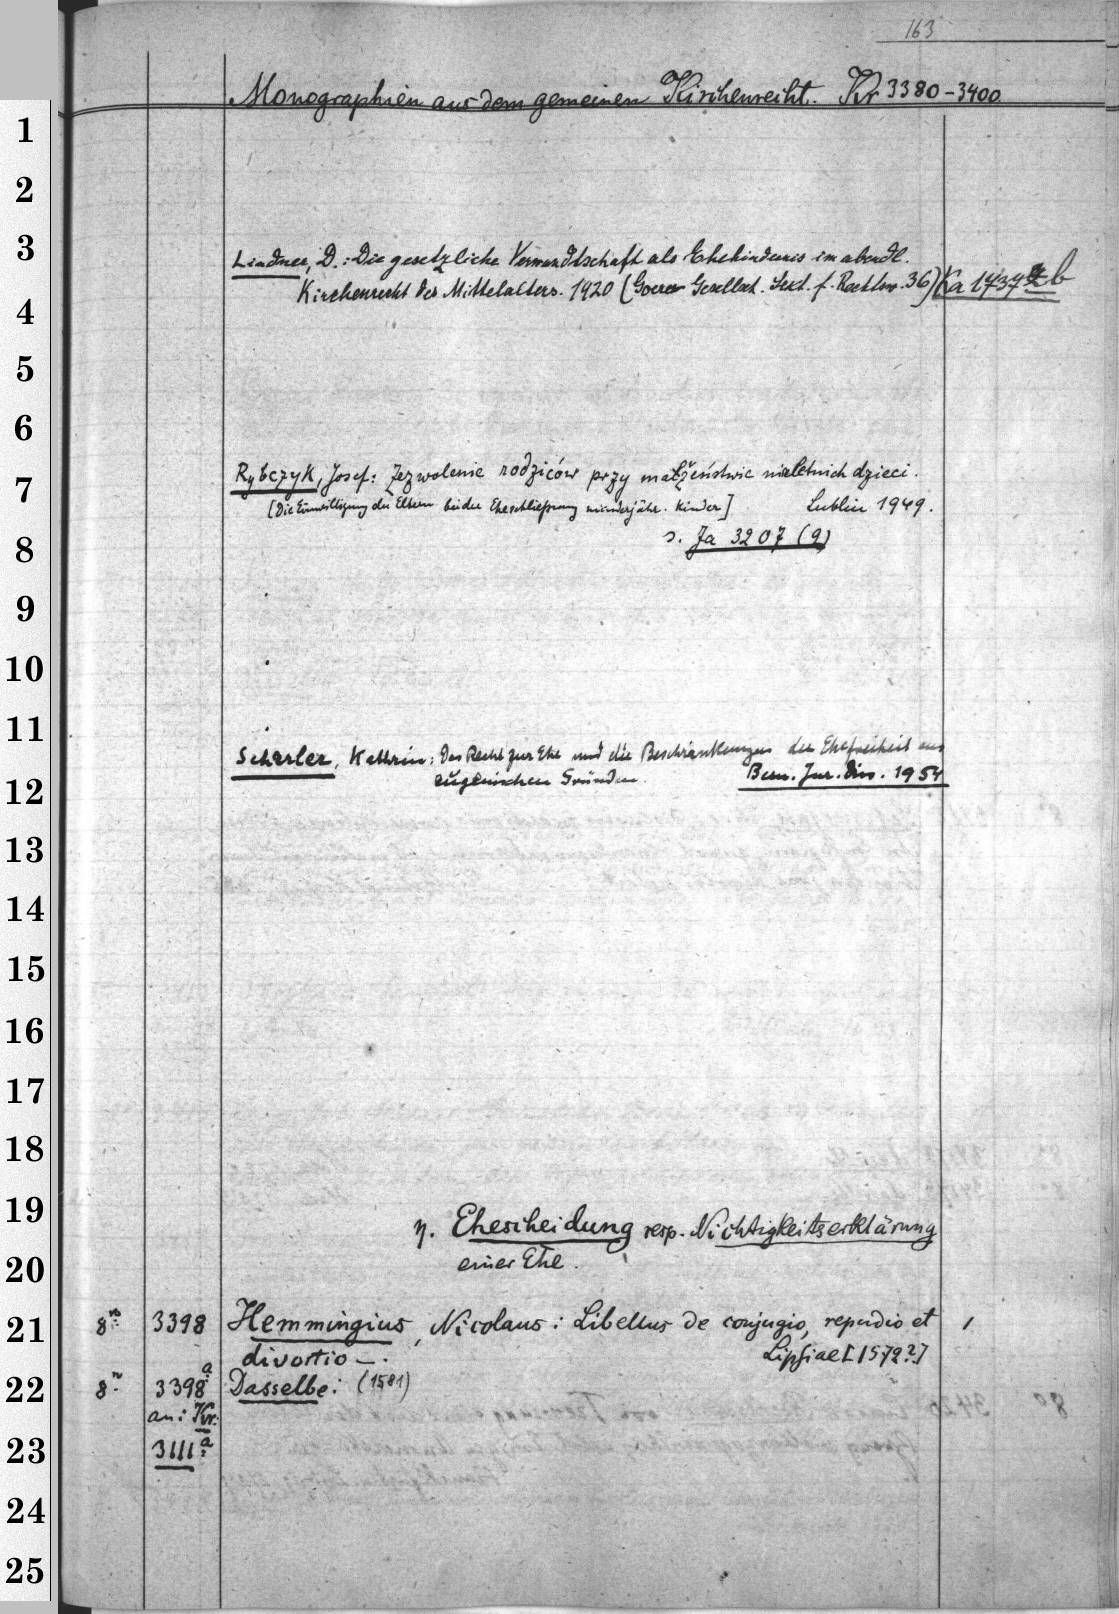 163
Monographien aus dem gemeinen Kirchenrecht. Kr 3380-3400
1
2
3
Lindner, D.: Die gesetzliche Verwandtschaft als Ehehindernis im abendl.
Kirchenrecht des Mittelalters. 1920 (Goerres Gesellsch. Sekt. f. Rechtsw. 36) Ka 1737 b
4
5
6
Rybczyk, Josef: Zezwolenie rodziców przy małżeństwie nieletnich dzieci.
7
[Die Einwilligung der Eltern bei der Eheschließung minderjähr. Kinder] Lublin 1949.
s. Ja 3207 (9)
8
9
10
11
Scherler, Kathrin: Das Recht zur Ehe und die Beschränkungen der Ehefreiheit aus
eugenischen Gründen. Bern. Jur. Diss. 1954
12
13
14
15
16
17
18
19
η. Ehescheidung resp. Nichtigkeitserklärung
einer Ehe.
20
21 8º 3398 Hemmingius, Nicolaus: Libellus de conjugio, repudio et
divortio —. Lipsiae [1572?]
22 8º 3398a Dasselbe: (1581)
an: Kr.
23 3111a
24
25